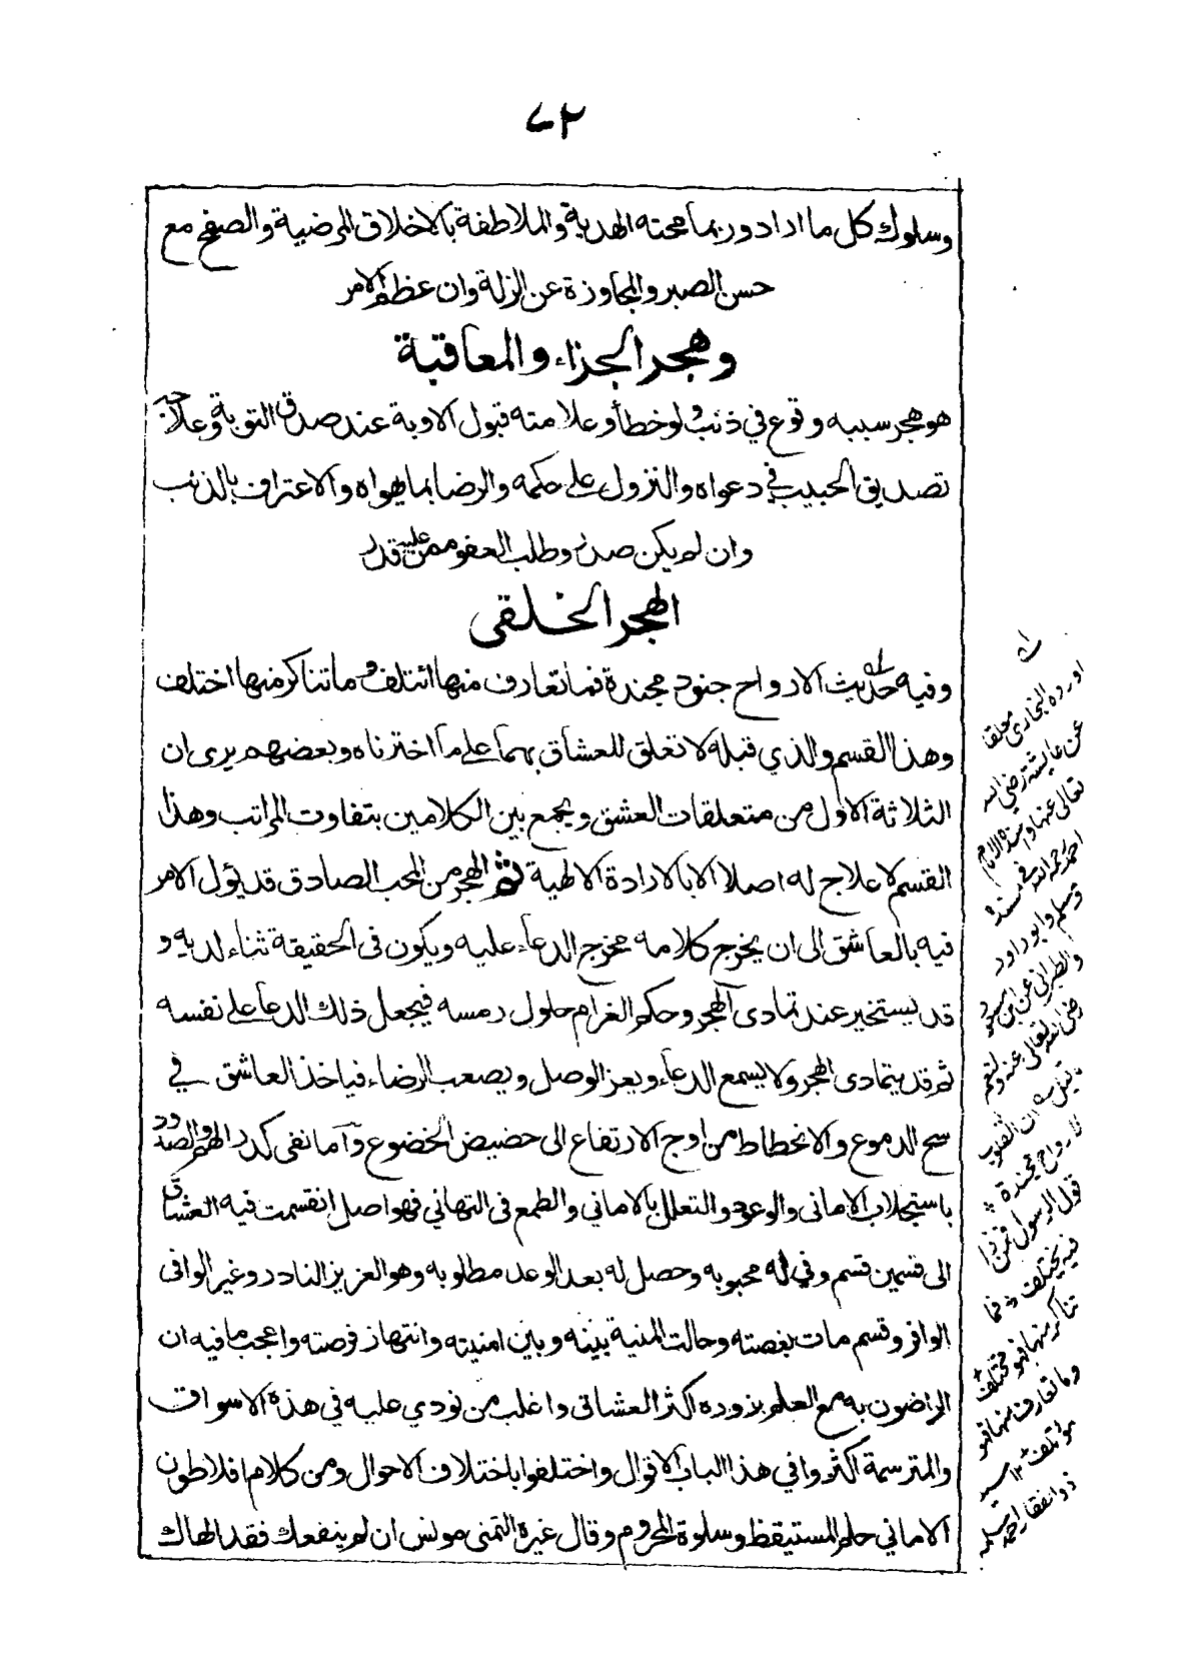 ٧٢
وسلوك كل ما اراد وربما محته الهدية والملاطفة بالاخلاق المرضية والصفح مع
حسن الصبر والمجاوزة عن الزلة وان عظم الامر
وهجر الجزاء والمعاقبة
هو هجر سببه وقوع في ذنب ولو خطأ وعلامته قبول الاوبة عند صدق التوبة وعلاجه
تصديق الحبيب في دعواه والنزول على حكمه والرضا بما يهواه والاعتراف بالذنب
وان لم يكن صدر وطلب العفو ممن عليه قدر
الهجر الخلقى
وفيه حديث الارواح جنود مجندة فما تعارف منها ائتلف وما تناكر منها اختلف
وهذا القسم والذي قبله لا تعلق للعشاق بهما على ما اخترناه وبعضهم يرى ان
الثلاثة الاول من متعلقات العشق ويجمع بين الكلامين بتفاوت المراتب وهذا
القسم لا علاج له اصلا الا بالارادة الالهية ثم الهجر من المحب الصادق قد يؤل الامر
فيه بالعاشق الى ان يخرج كلامه مخرج الدعاء عليه ويكون فى الحقيقة ثناء لديه و
قد يستخير عند تمادى الهجر وحكم الغرام حلول رمسه فيجعل ذلك الدعا على نفسه
ثم قد يتمادى الهجر ولا يسمع الدعاء ويعز الوصل ويصعب الرضاء فياخذ العاشق في
سح الدموع والانحطاط من اوج الارتفاع الى حضيض الخضوع وآما نفى كدر الهم والصدود
باستجلاب الامانى والوعود والتعلل بالاماني والطمع فى التهاني فهو اصل انقسمت فيه العشاق
الى قسمين قسم وفي له محبوبه وحصل له بعد الوعد مطلوبه وهو العزيز النادر وغير الوافى
الوافر وقسم مات بغصته وحالت المنية بينه وبين امنيته وانتهاز فرصته واعجب ما فيه ان
الراضون به مع العلم بزوره اكثر العشاق واغلب من نودي عليه في هذه الاسواق
والمترسمة اكثروا في هذا الباب الاقوال واختلفوا باختلاف الاحوال ومن كلام افلاطون
الاماني حلم المستيقظ وسلوة المحروم وقال غيره التمنى مونس ان لم ينفعك فقد الهاك
اورده البخارى معلقا
عن عايشة رضي الله
تعالى عنها وسنده الامام
احمد رحمه الله فى مسنده
ومسلم وابو داود
والطبرانى عن ابن مسعود
رضى الله تعالى عنه
الارواح مجندة
تناكر منها فهو مختلف
وما تعارف منها فهو
مؤتلف ١٢ سيد
ذو الفقار احمد سلمه